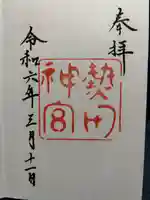 奉拝
熱田
神宮
令和六年三月十一日